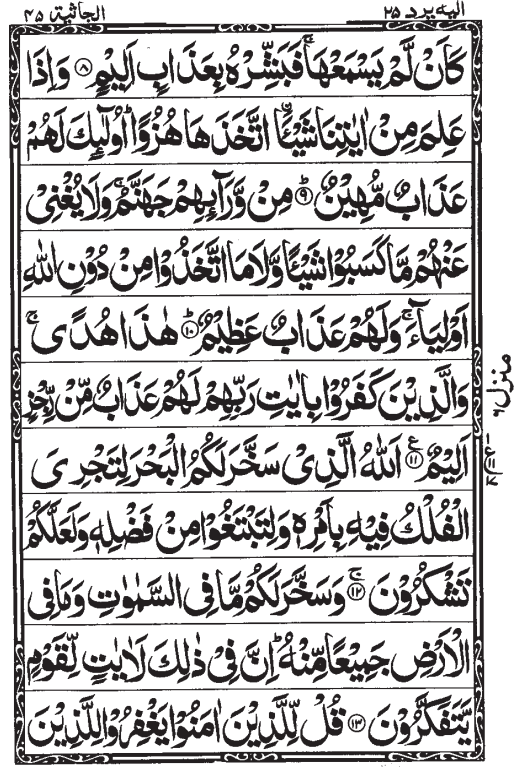 اليه يرد ٢٥
الجاثية ٤٥
كَاَنْ لَّمْ يَسْمَعْهَا ۚ فَبَشِّرْهُ بِعَذَابٍ اَلِيْمٍ ﴿۸﴾ وَاِذَا
عَلِمَ مِنْ اٰيٰتِنَا شَيْـًٔا اتَّخَذَهَا هُزُوًا ؕ اُولٰٓئِكَ لَهُمْ
عَذَابٌ مُّهِيْنٌ ﴿۹﴾ مِنْ وَّرَآئِهِمْ جَهَنَّمُ ۚ وَلَا يُغْنِىْ
عَنْهُمْ مَّا كَسَبُوْا شَيْـًٔا وَّلَا مَا اتَّخَذُوْا مِنْ دُوْنِ اللّٰهِ
اَوْلِيَآءَ ۚ وَلَهُمْ عَذَابٌ عَظِيْمٌ ﴿۱۰﴾ هٰذَا هُدًى ۚ
وَالَّذِيْنَ كَفَرُوْا بِاٰيٰتِ رَبِّهِمْ لَهُمْ عَذَابٌ مِّنْ رِّجْزٍ
اَلِيْمٌ ﴿۱۱﴾ ع اَللّٰهُ الَّذِىْ سَخَّرَ لَكُمُ الْبَحْرَ لِتَجْرِىَ
الْفُلْكُ فِيْهِ بِاَمْرِهٖ وَلِتَبْتَغُوْا مِنْ فَضْلِهٖ وَلَعَلَّكُمْ
تَشْكُرُوْنَ ۚ﴿۱۲﴾ وَسَخَّرَ لَكُمْ مَّا فِى السَّمٰوٰتِ وَمَا فِى
الْاَرْضِ جَمِيْعًا مِّنْهُ ؕ اِنَّ فِىْ ذٰلِكَ لَاٰيٰتٍ لِّقَوْمٍ
يَّتَفَكَّرُوْنَ ﴿۱۳﴾ قُلْ لِّلَّذِيْنَ اٰمَنُوْا يَغْفِرُوْا لِلَّذِيْنَ
منزل ٦